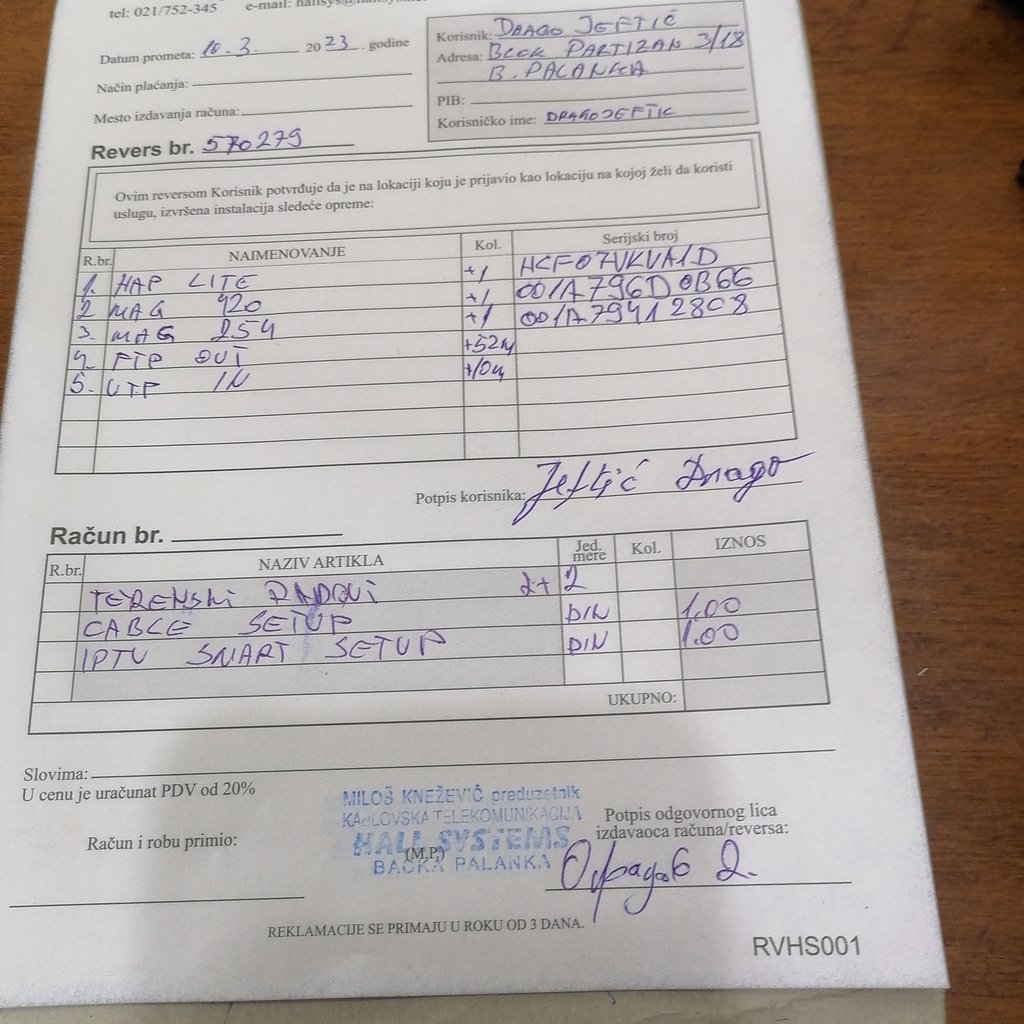 tel: 021/752-345 e-mail:
Datum prometa: 10.3. 2023. godine
Način plaćanja:
Mesto izdavanja računa:
Korisnik: DRAGO JEFTIĆ
Adresa: BLOK PARTIZAN 3/18
B. PALANKA
PIB:
Korisničko ime: DRAGOJEFTIC
Revers br. 570279
Ovim reversom Korisnik potvrđuje da je na lokaciji koju je prijavio kao lokaciju na kojoj želi da koristi
uslugu, izvršena instalacija sledeće opreme:
R.br. NAIMENOVANJE Kol. Serijski broj
1. HAP LITE +1 HCF07VKVA1D
2 MAG 420 +1 001A796D0B66
3. MAG 254 +1 001A79412808
4. FTP OUT +52m
5. UTP IN +10m
Potpis korisnika: Jeftić Drago
Račun br.
R.br. NAZIV ARTIKLA Jed. mere Kol. IZNOS
TERENSKI RADOVI 2+2
CABLE SETUP DIN 1.00
IPTV SMART SETUP DIN 1.00
UKUPNO:
Slovima:
U cenu je uračunat PDV od 20%
Račun i robu primio:
MILOŠ KNEŽEVIĆ preduzetnik
KABLOVSKA TELEKOMUNIKACIJA
HALL SYSTEMS
(M.P.)
BAČKA PALANKA
Potpis odgovornog lica
izdavaoca računa/reversa:
REKLAMACIJE SE PRIMAJU U ROKU OD 3 DANA.
RVHS001